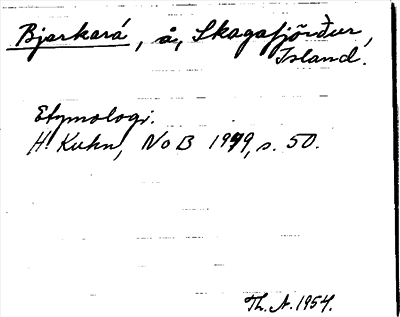 Bjarkará, å, Skagafjörður,
Island.
Etymologi.
H. Kuhn, NoB 1949, s. 50.
Th. A. 1954.